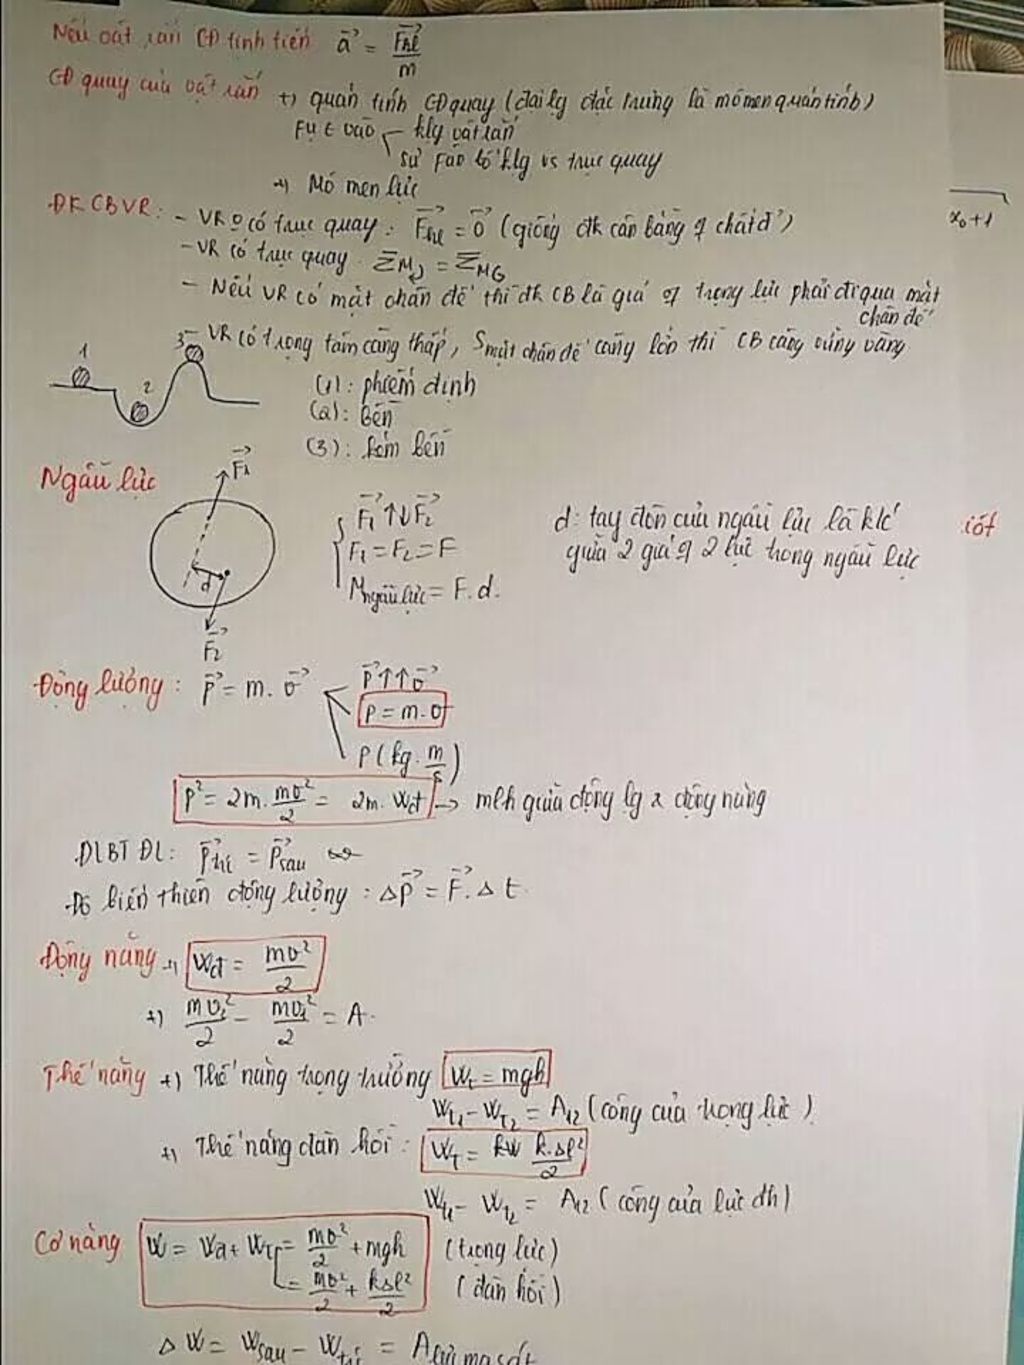 Nếu vật rắn CĐ tịnh tiến a⃗ = F⃗hl / m
CĐ quay của vật rắn +) quán tính CĐ quay (đại lg đặc trưng là mômen quán tính)
Fụ t vào klg vật rắn
sự Fân bố klg vs trục quay
+) Mô men lực
ĐK CBVR: - VR 0 có trục quay: F⃗hl = 0⃗ (giống đk cân bằng of chất đ')
- VR có trục quay. ΣM = ΣM
- Nếu VR có mặt chân đế thì đk CB là giá of trọng lực phải đi qua mặt
chân đế
- VR có trọng tâm càng thấp, Smặt chân đế càng lớn thì CB càng vững vàng
1 2 3
(1): phiếm định
(2): bền
(3): kém bền
Ngẫu lực F⃗1
F⃗1 ↑↓ F⃗2
F1 = F2 = F
Mngẫu lực = F.d.
d: tay đòn của ngẫu lực là k/c
giữa 2 giá of 2 lực trong ngẫu lực
d
F⃗2
Động lượng: p⃗ = m.v⃗
p⃗ ↑↑ v⃗
p = m.v
p (kg.m/s)
p² = 2m.mv²/2 = 2m.Wđ → mlh giữa động lg & động năng
ĐLBT ĐL: p⃗trc = p⃗sau
Độ biến thiên động lượng: Δp⃗ = F⃗.Δt
Động năng +) Wđ = mv²/2
+) mv2²/2 - mv1²/2 = A.
Thế năng +) Thế năng trọng trường Wt = mgh
Wt1 - Wt2 = A12 (công của trọng lực)
+) Thế năng đàn hồi: WT = k.Δl²/2
Wt1 - Wt2 = A12 (công của lực đh)
Cơ năng W = Wđ + Wt = mv²/2 + mgh (trọng lực)
= mv²/2 + kΔl²/2 (đàn hồi)
ΔW = Wsau - Wtrc = Alực ma sát
x0 + 1